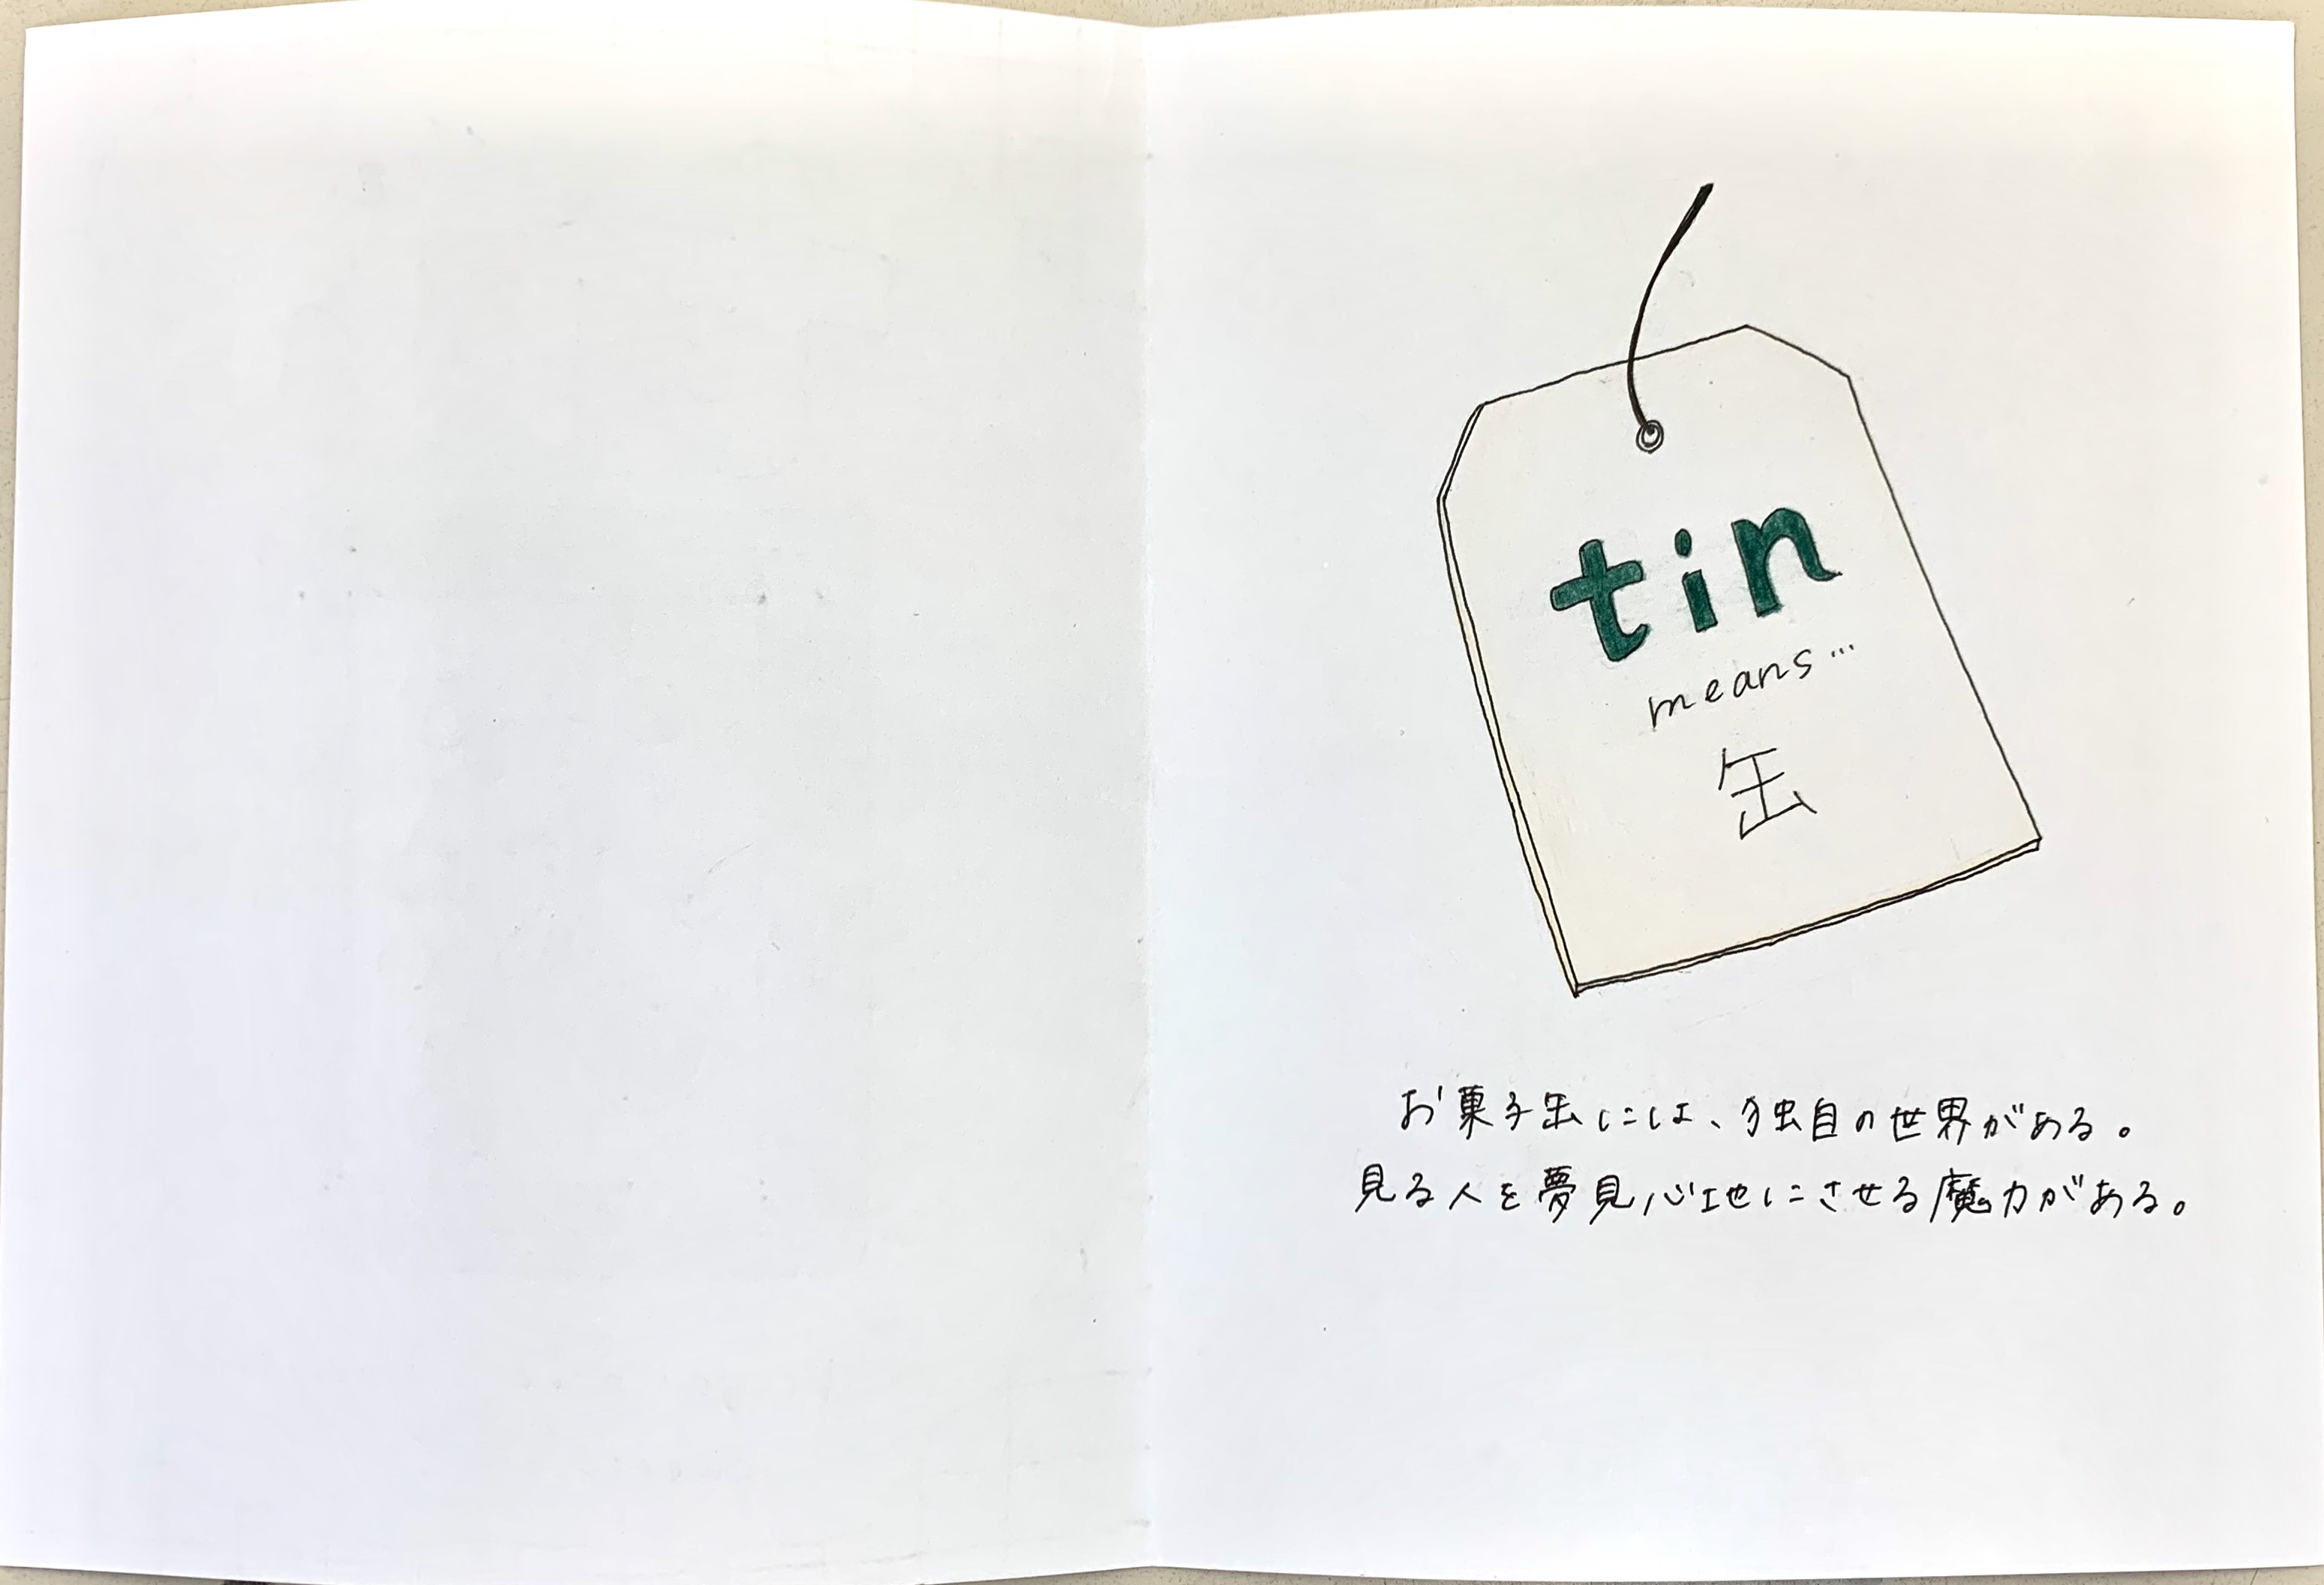 tin
means…
缶
お菓子缶には、独自の世界がある。
見る人を夢見心地にさせる魔力がある。